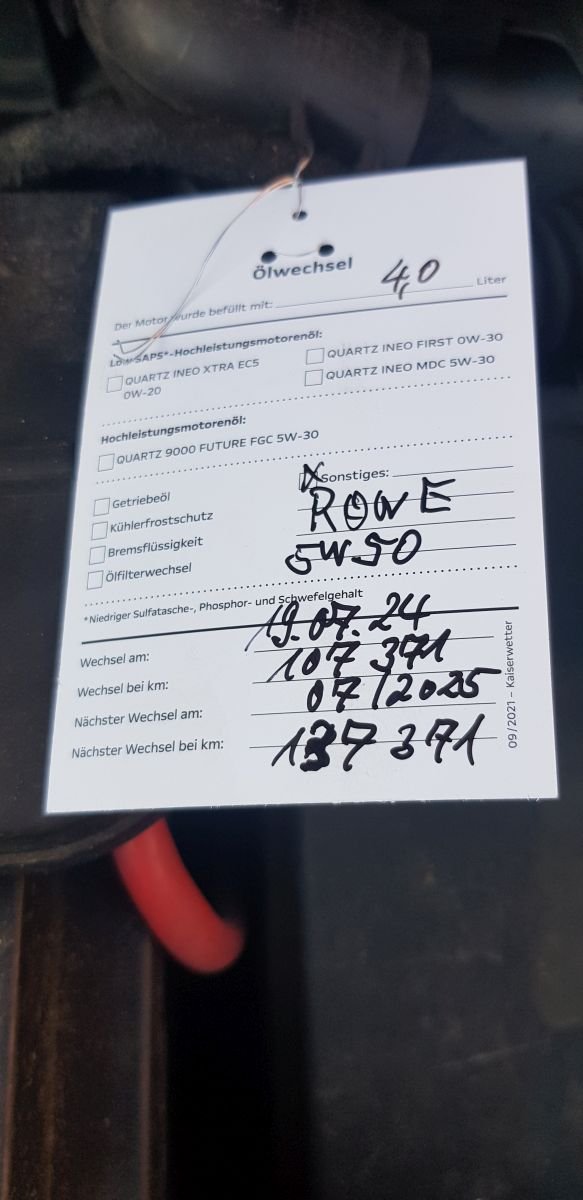 Ölwechsel
Der Motor wurde befüllt mit: 4,0 Liter
Low-SAPS*-Hochleistungsmotorenöl:
QUARTZ INEO XTRA EC5 0W-20
QUARTZ INEO FIRST 0W-30
QUARTZ INEO MDC 5W-30
Hochleistungsmotorenöl:
QUARTZ 9000 FUTURE FGC 5W-30
Getriebeöl
Kühlerfrostschutz
Bremsflüssigkeit
Ölfilterwechsel
X Sonstiges:
ROWE
5W50
*Niedriger Sulfatasche-, Phosphor- und Schwefelgehalt
Wechsel am: 19.07.24
Wechsel bei km: 107 371
Nächster Wechsel am: 07/2025
Nächster Wechsel bei km: 137 371
09/2021 – Kaiserwetter